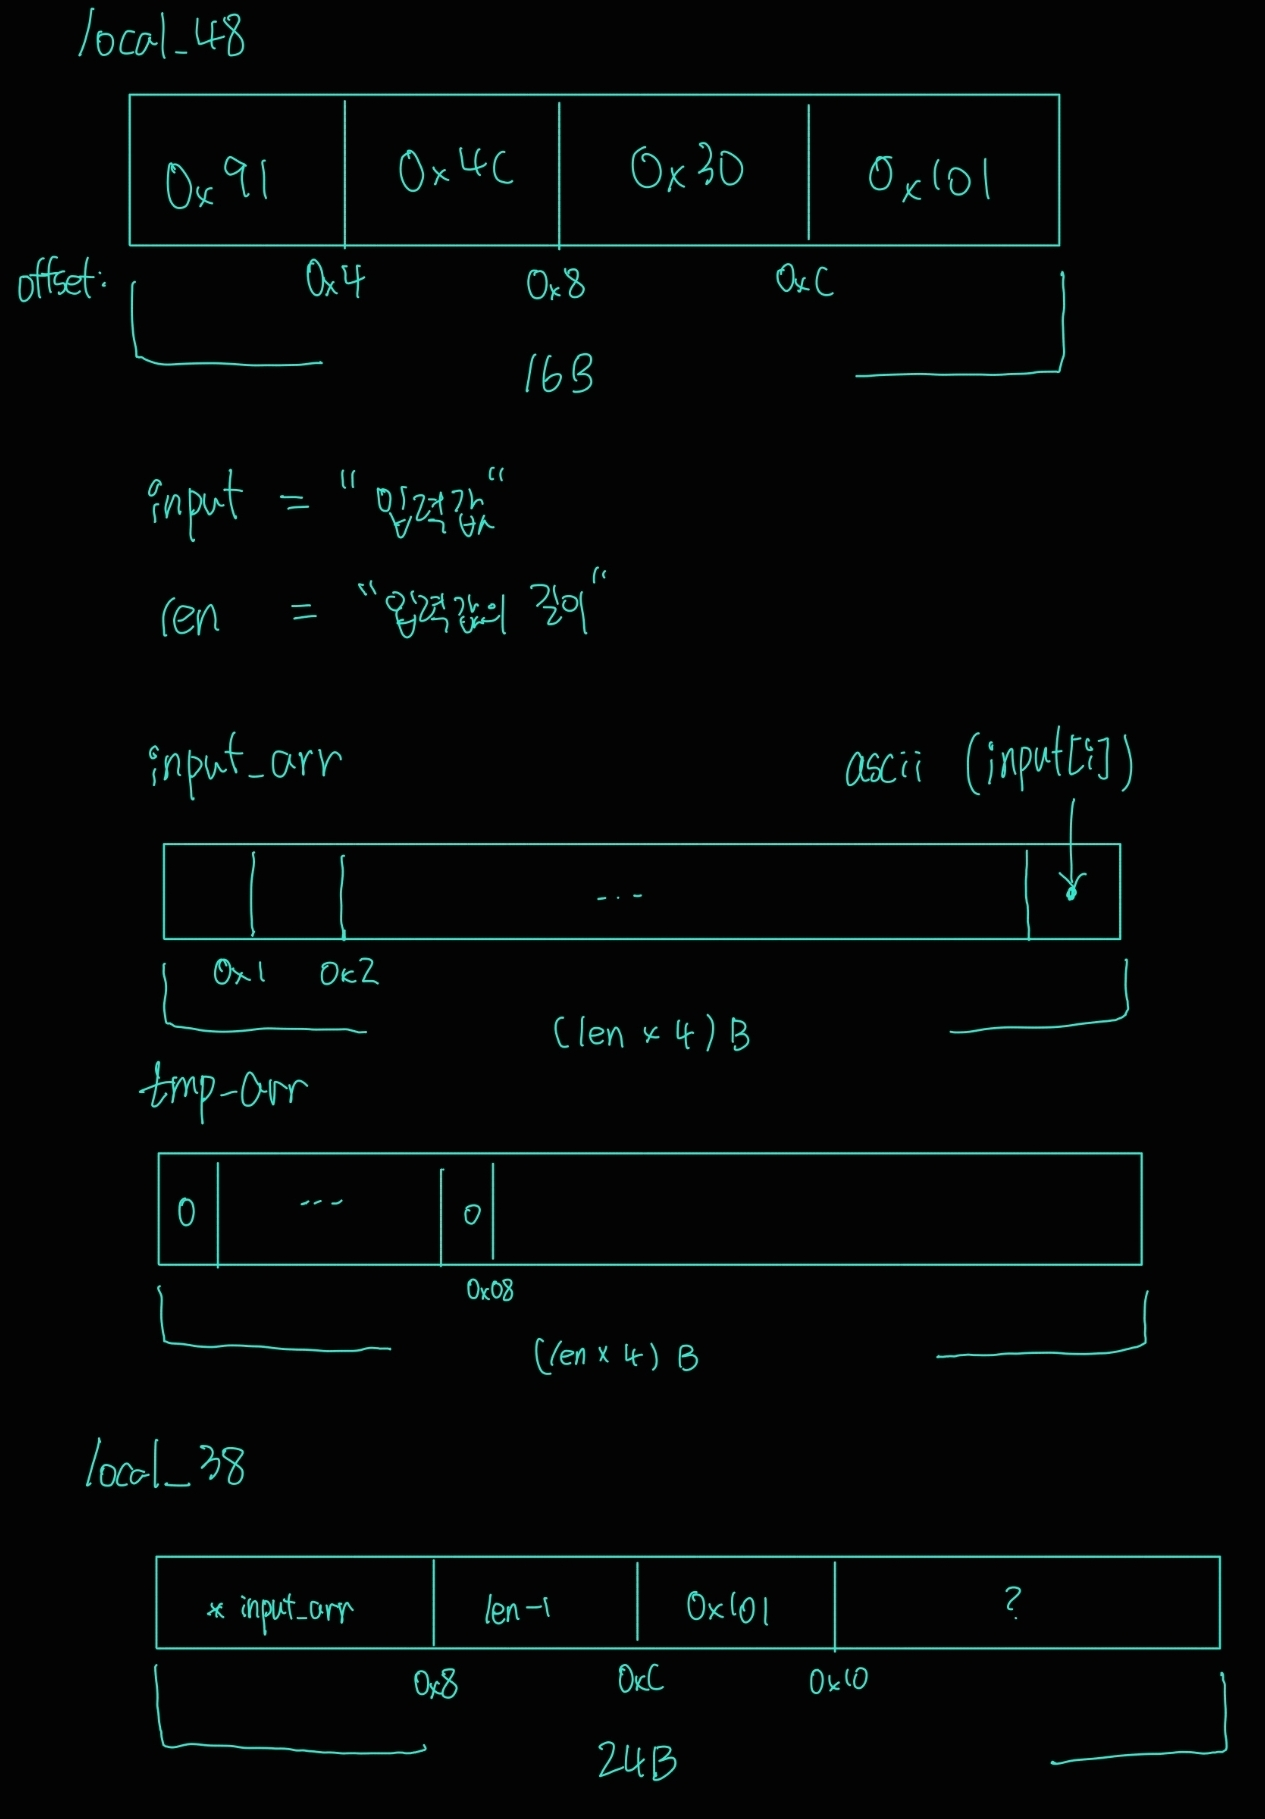 local_48
0x91 0x4C 0x30 0x101
offset: 0x4 0x8 0xC
16B
input = "입력값"
len = "입력값의 길이"
input_arr ascii (input[i])
...
0x1 0x2
(len x 4) B
tmp-arr
0 --- 0
0x08
(len x 4) B
local_38
* input_arr len-1 0x101 ?
0x8 0xC 0x10
24B